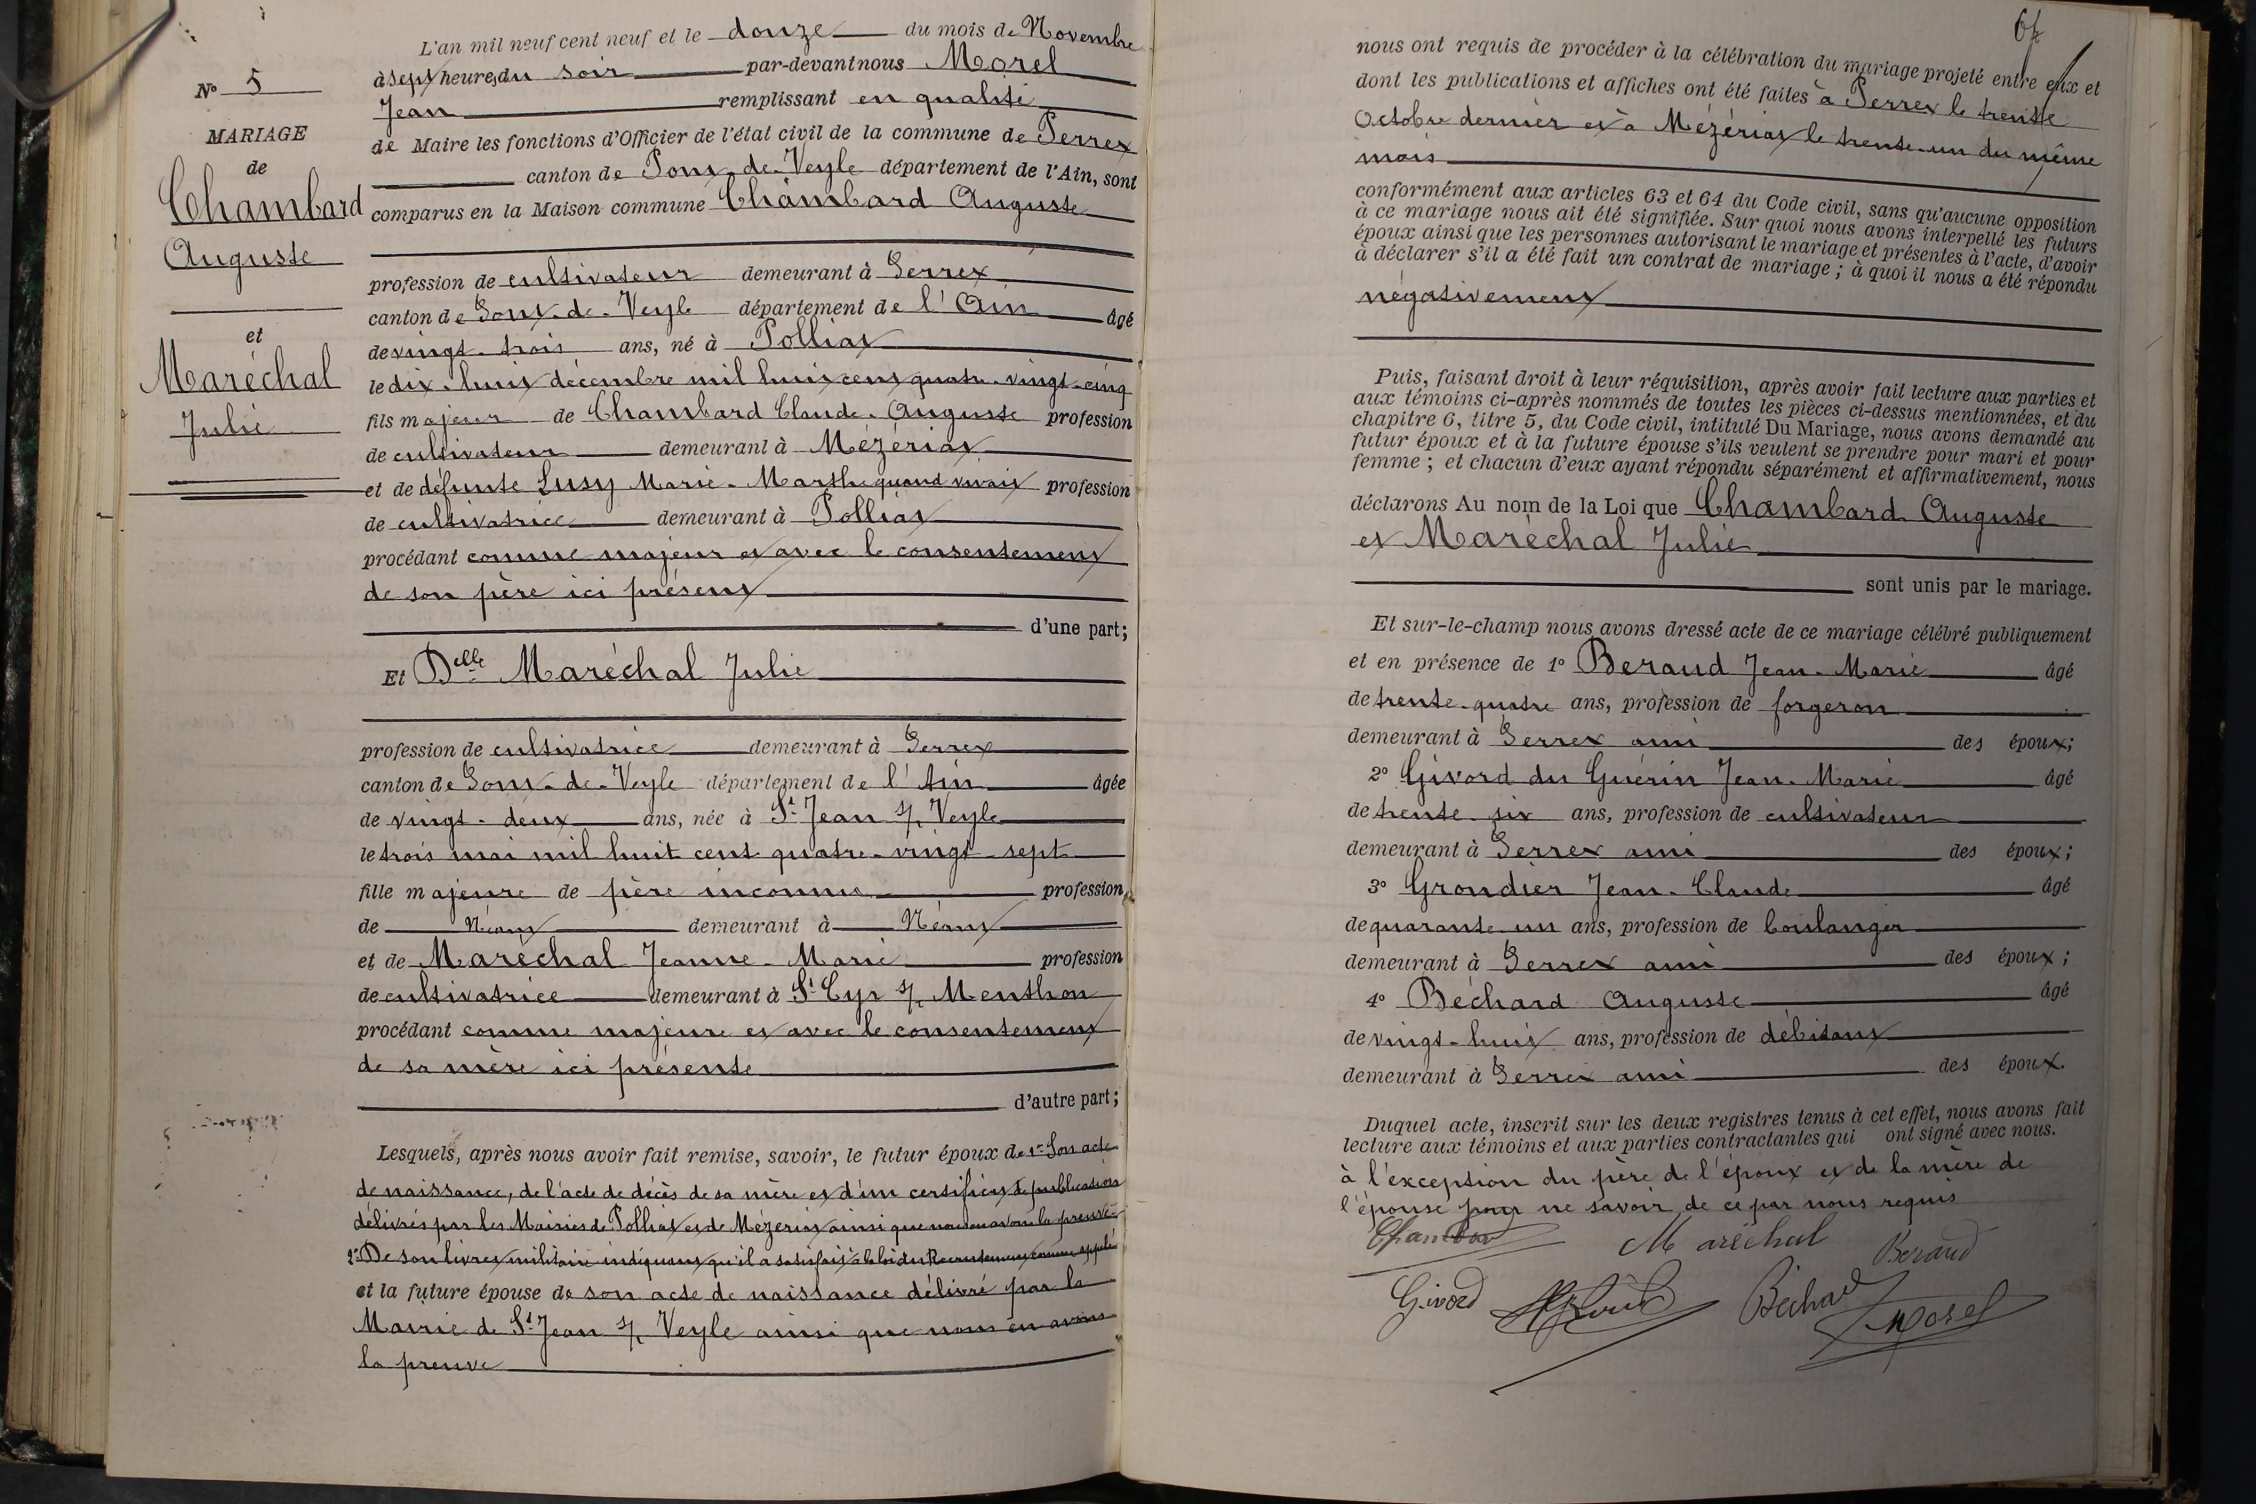 N° 5
MARIAGE
de
Chambard
Auguste
et
Maréchal
Julie
L'an mil neuf cent neuf et le douze du mois de Novembre
à sept heures du soir par-devant nous Morel
Jean remplissant en qualité
de Maire les fonctions d'Officier de l'état civil de la commune de Perrex
canton de Pont-de-Veyle département de l'Ain, sont
comparus en la Maison commune Chambard Auguste
profession de cultivateur demeurant à Perrex
canton de Pont-de-Veyle département de l'Ain âgé
de vingt-trois ans, né à Polliat
le dix-huit décembre mil huit cent quatre-vingt-cinq
fils majeur de Chambard Claude-Auguste profession
de cultivateur demeurant à Mézériat
et de défunte Lusy Marie-Marthe quand vivait profession
de cultivatrice demeurant à Polliat
procédant comme majeur et avec le consentement
de son père ici présent
d'une part;
Et Delle Maréchal Julie
profession de cultivatrice demeurant à Perrex
canton de Pont-de-Veyle département de l'Ain âgée
de vingt-deux ans, née à St Jean s/ Veyle
le trois mai mil huit cent quatre-vingt-sept
fille majeure de père inconnu profession
de Néant demeurant à Néant
et de Maréchal Jeanne-Marie profession
de cultivatrice demeurant à St Cyr s/ Menthon
procédant comme majeure et avec le consentement
de sa mère ici présente
d'autre part;
Lesquels, après nous avoir fait remise, savoir, le futur époux de 1° Son acte
de naissance, de l'acte de décès de sa mère et d'un certificat de publication
délivrés par les Mairies de Polliat et de Mézériat ainsi que nous en avons la preuve
2° De son livret militaire indiquant qu'il a satisfait à la loi du Recrutement comme appelé
et la future épouse de son acte de naissance délivré par la
Mairie de St Jean s/ Veyle ainsi que nous en avons
la preuve
64
nous ont requis de procéder à la célébration du mariage projeté entre eux et
dont les publications et affiches ont été faites à Perrex le trente
Octobre dernier et à Mézériat le trente-un du même
mois
conformément aux articles 63 et 64 du Code civil, sans qu'aucune opposition
à ce mariage nous ait été signifiée. Sur quoi nous avons interpellé les futurs
époux ainsi que les personnes autorisant le mariage et présentes à l'acte, d'avoir
à déclarer s'il a été fait un contrat de mariage; à quoi il nous a été répondu
négativement
Puis, faisant droit à leur réquisition, après avoir fait lecture aux parties et
aux témoins ci-après nommés de toutes les pièces ci-dessus mentionnées, et du
chapitre 6, titre 5, du Code civil, intitulé Du Mariage, nous avons demandé au
futur époux et à la future épouse s'ils veulent se prendre pour mari et pour
femme; et chacun d'eux ayant répondu séparément et affirmativement, nous
déclarons Au nom de la Loi que Chambard Auguste
et Maréchal Julie
sont unis par le mariage.
Et sur-le-champ nous avons dressé acte de ce mariage célébré publiquement
et en présence de 1° Beraud Jean-Marie âgé
de trente-quatre ans, profession de forgeron
demeurant à Perrex ami des époux;
2° Givord du Guérin Jean-Marie âgé
de trente-six ans, profession de cultivateur
demeurant à Perrex ami des époux;
3° Grondier Jean-Claude âgé
de quarante-un ans, profession de boulanger
demeurant à Perrex ami des époux;
4° Béchard Auguste âgé
de vingt-huit ans, profession de débitant
demeurant à Perrex ami des époux.
Duquel acte, inscrit sur les deux registres tenus à cet effet, nous avons fait
lecture aux témoins et aux parties contractantes qui ont signé avec nous.
à l'exception du père de l'époux et de la mère de
l'épouse pour ne savoir de ce par nous requis
Chambard Maréchal Beraud
Givord Béchard Morel